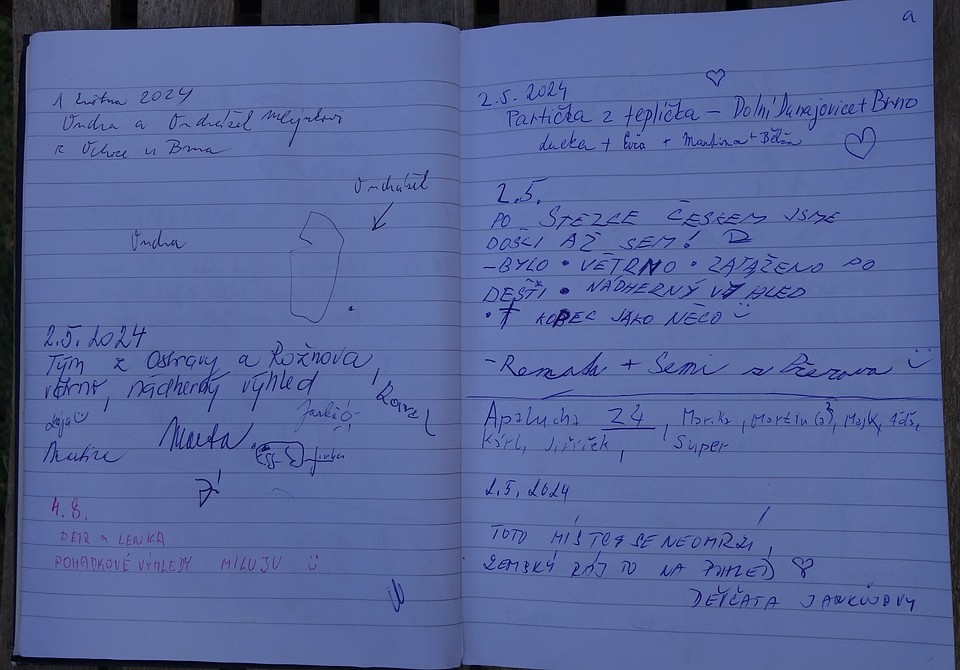 1 května 2024
Ondra a Ondrášek Mlýnkovi
z Brna
Ondrášek
Ondra
2.5. 2024
Tým z Ostravy a Rožnova,
větrno, nádherný výhled
Karel
Marta
4.8.
PETR a LENKA
POHÁDKOVÉ VÝHLEDY MILUJU
a
2.5. 2024
Partička z teplíčka – Dolní Dunajovice + Brno
+ Eva + Martina +
2.5.
PO STEZCE ČESKEM JSME
DOŠLI AŽ SEM!
- BYLO • VĚTRNO • ZATAŽENO PO
DEŠTI • NÁDHERNÝ VÝHLED
• KOPEC JAKO NĚCO
- Renata + Semi z Březova
Apalucha 24, Marika, Martin,
Jiříček, Super
2.5. 2024
TOTO MÍSTO SE NEOMRZÍ,
ZEMSKÝ RÁJ TO NA POHLED
DĚVČATA